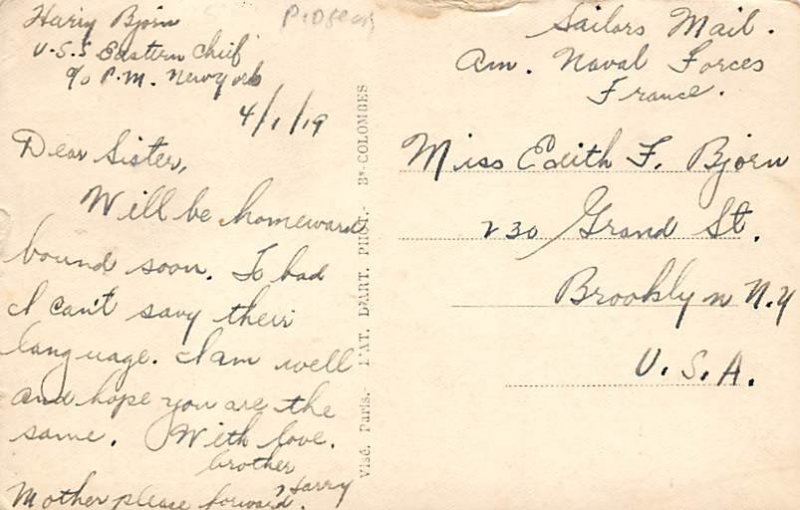 Harry Bjorn
U.S.S Eastern Chief
c/o P.M. New york
4/1/19
Dear Sister,
Will be homeward
bound soon. To bad
I can't savy their
language. I am well
and hope you are the
same. With love.
brother
Harry
Mother please forward.
Visé, Paris.- L'AT. D'ART. PHOT.- Bs-COLOMBES
Sailors Mail.
Am. Naval Forces
France.
Miss Edith F. Bjorn
230 Grand St.
Brooklyn N.Y
U.S.A.